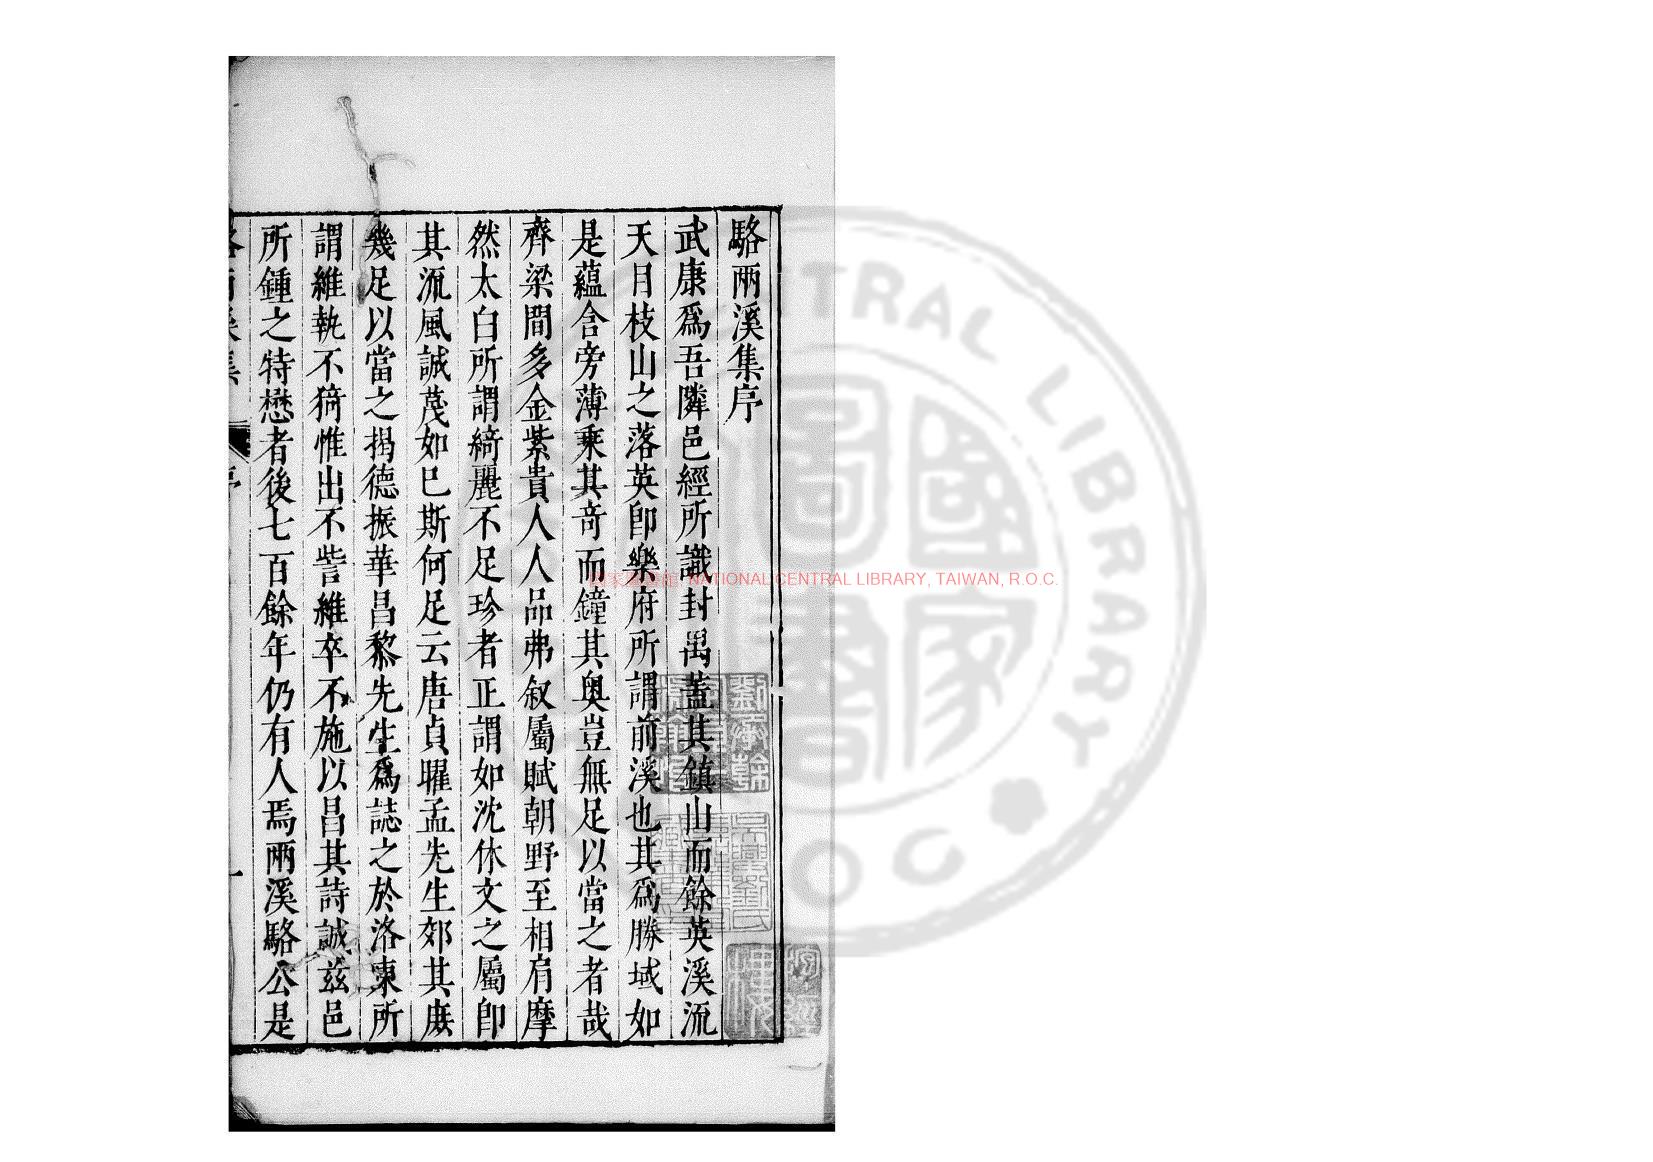 駱兩溪集序
武康爲吾隣邑經所識封禺蓋其鎮山而餘英溪流
天目枝山之落英卽樂府所謂前溪也其爲勝域如
是蘊含旁薄乘其竒而鐘其奥豈無足以當之者哉
齊梁間多金紫貴人人品弗叙屬賦朝野至相肩摩
然太白所謂綺麗不足珍者正謂如沈休文之屬卽
其流風誠蔑如巳斯何足云唐貞曜孟先生郊其庶
幾足以當之揭德振華昌黎先生爲誌之於洛東所
謂維執不猗惟出不訾維卒不施以昌其詩誠兹邑
所鍾之特懋者後七百餘年仍有人焉兩溪駱公是
國家圖書館 NATIONAL CENTRAL LIBRARY, TAIWAN, R.O.C.